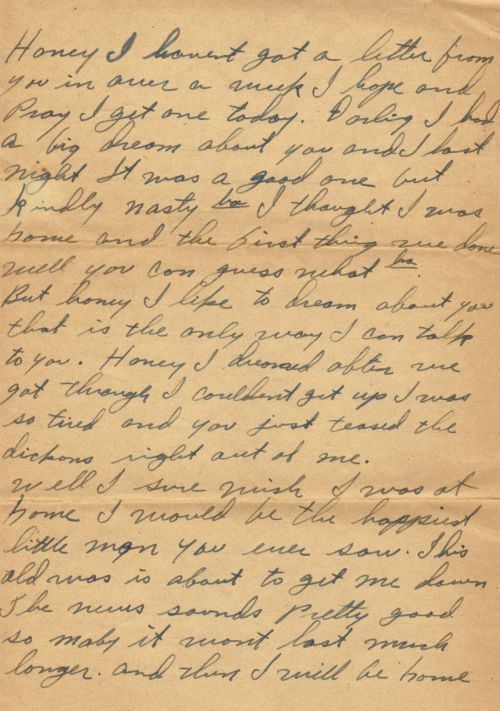 Honey I havent got a letter from
you in over a week I hope and
Pray I get one today. Darling I had
a big dream about you and I last
night It was a good one but
kindly nasty ha I thought I was
home and the first thing we done
well you can guess what ha.
But honey I like to dream about you
that is the only way I can talk
to you. Honey I dreamed after we
got through I couldent get up I was
so tired and you just teased the
dickons right out of me.
Well I sure wish I was at
home I would be the happiest
little man you ever saw. This
old war is about to get me down
The news sounds Pretty good
so maby it wont last much
longer. and then I will be home